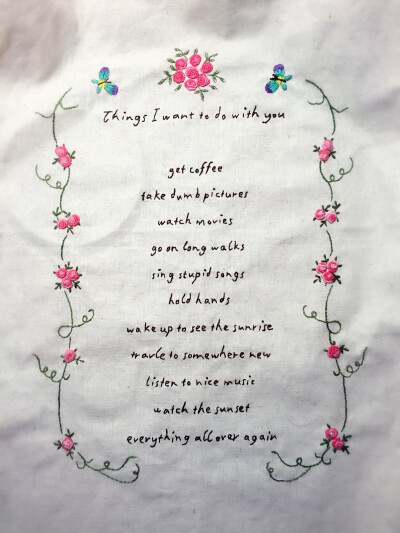 Things I want to do with you
get coffee
take dumb pictures
watch movies
go on long walks
sing stupid songs
hold hands
wake up to see the sunrise
travle to somewhere new
listen to nice music
watch the sunset
everything all over again